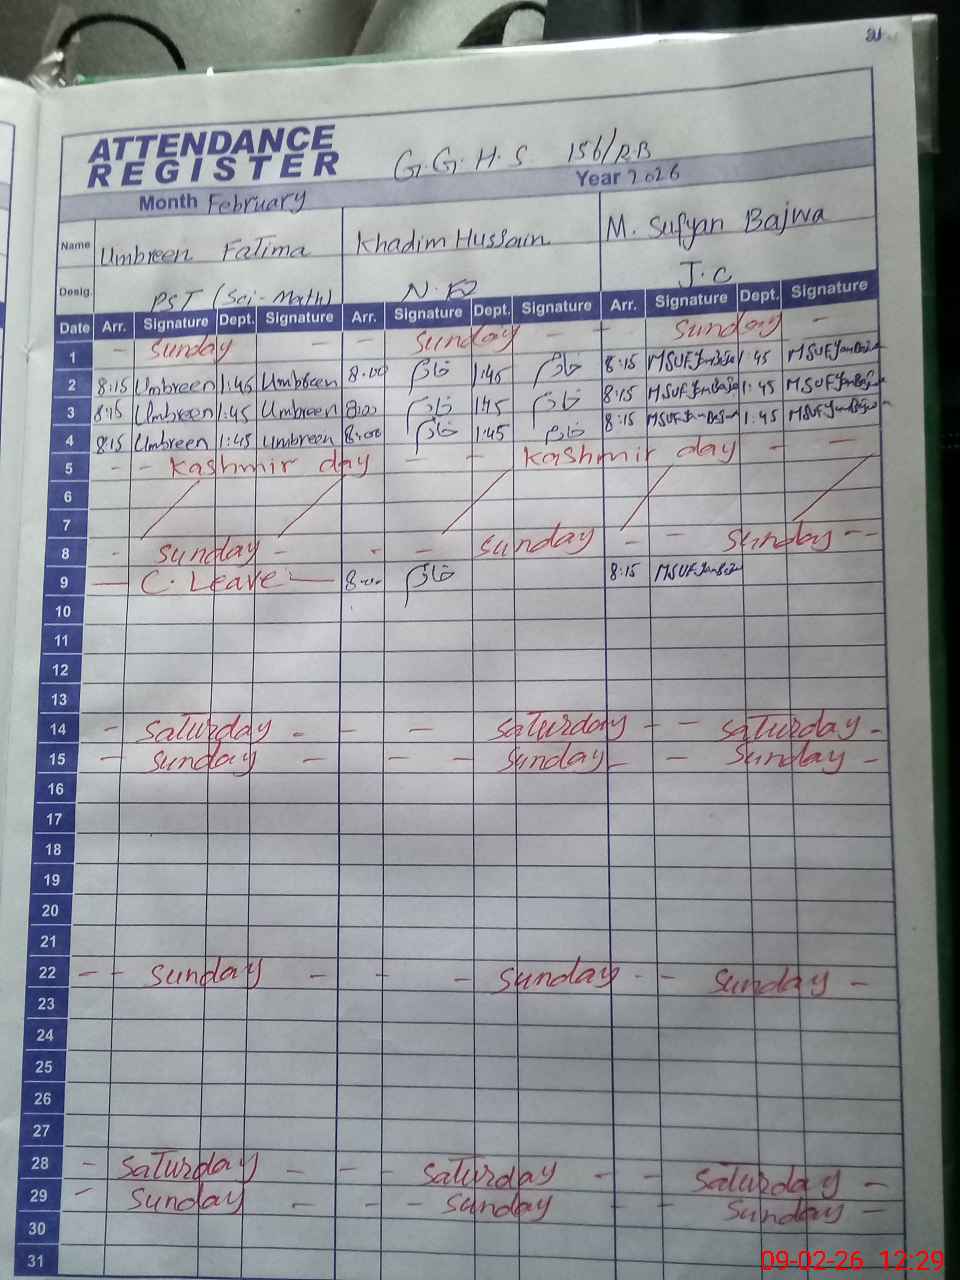 21
ATTENDANCE
REGISTER
G.G.H.S. 156/RB
Month February Year 2026
Name Umbreen Fatima Khadim Hussain M. Sufyan Bajwa
Desig. PST (Sci-Math) N.Q J.C
Date Arr. Signature Dept. Signature Arr. Signature Dept. Signature Arr. Signature Dept. Signature
1 - Sunday - - Sunday - - Sunday -
2 8:15 Umbreen 1:45 Umbreen 8:00 خادم 1:45 خادم 8:15 1:45
3 8:15 Umbreen 1:45 Umbreen 8:00 خادم 1:45 خادم 8:15 1:45
4 8:15 Umbreen 1:45 Umbreen 8:00 خادم 1:45 خادم 8:15 1:45
5 - - Kashmir day - - Kashmir day - -
6
7
8 - Sunday - - - Sunday - - Sunday - -
9 — C. Leave — 8:00 خادم 8:15
10
11
12
13
14 - Saturday - - - Saturday - - Saturday -
15 - Sunday - - - Sunday - - Sunday -
16
17
18
19
20
21
22 - - Sunday - - - Sunday - - Sunday -
23
24
25
26
27
28 - Saturday - - - Saturday - - Saturday -
29 - Sunday - - - Sunday - - Sunday -
30
31
09-02-26 12:29